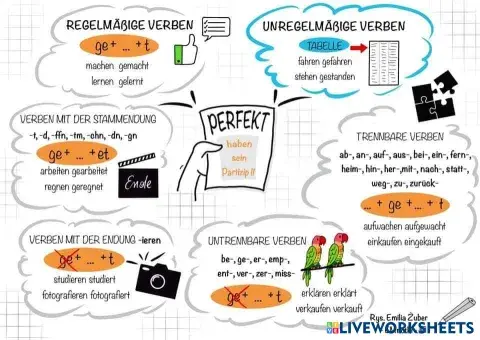 REGELMÄẞIGE VERBEN
ge+ ... +t
machen gemacht
lernen gelernt
UNREGELMÄẞIGE VERBEN
TABELLE
fahren gefahren
stehen gestanden
VERBEN MIT DER STAMMENDUNG
-t, -d, -ffn, -tm, -chn, -dn, -gn
ge+ ... +et
arbeiten gearbeitet
regnen geregnet
Ende
PERFEKT
haben
sein
Partizip II
TRENNBARE VERBEN
ab-, an-, auf-, aus-, bei-, ein-, fern-,
heim-, hin-, her-, mit-, nach-, statt-,
weg-, zu-, zurück-
... + ge + ... + t
aufwachen aufgewacht
einkaufen eingekauft
VERBEN MIT DER ENDUNG -ieren
ge+ ... +t
studieren studiert
fotografieren fotografiert
UNTRENNBARE VERBEN
be-, ge-, er-, emp-,
ent-, ver-, zer-, miss-
ge+ ... +t
erklären erklärt
verkaufen verkauft
Rys. Emilia Żuber
LIVEWORKSHEETS